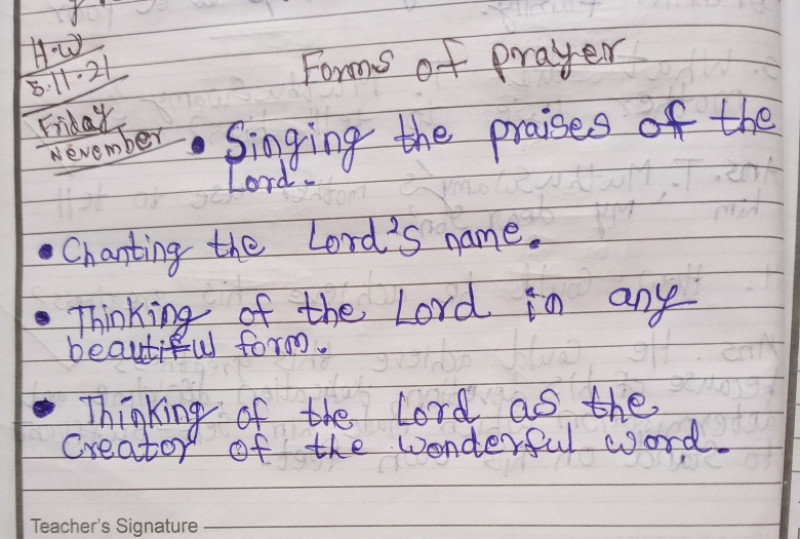 H.W
5.11.21
Friday
November
Forms of prayer
• Singing the praises of the
Lord.
• Chanting the Lord's name.
• Thinking of the Lord in any
beautiful form.
• Thinking of the Lord as the
Creator of the wonderful word.
Teacher's Signature